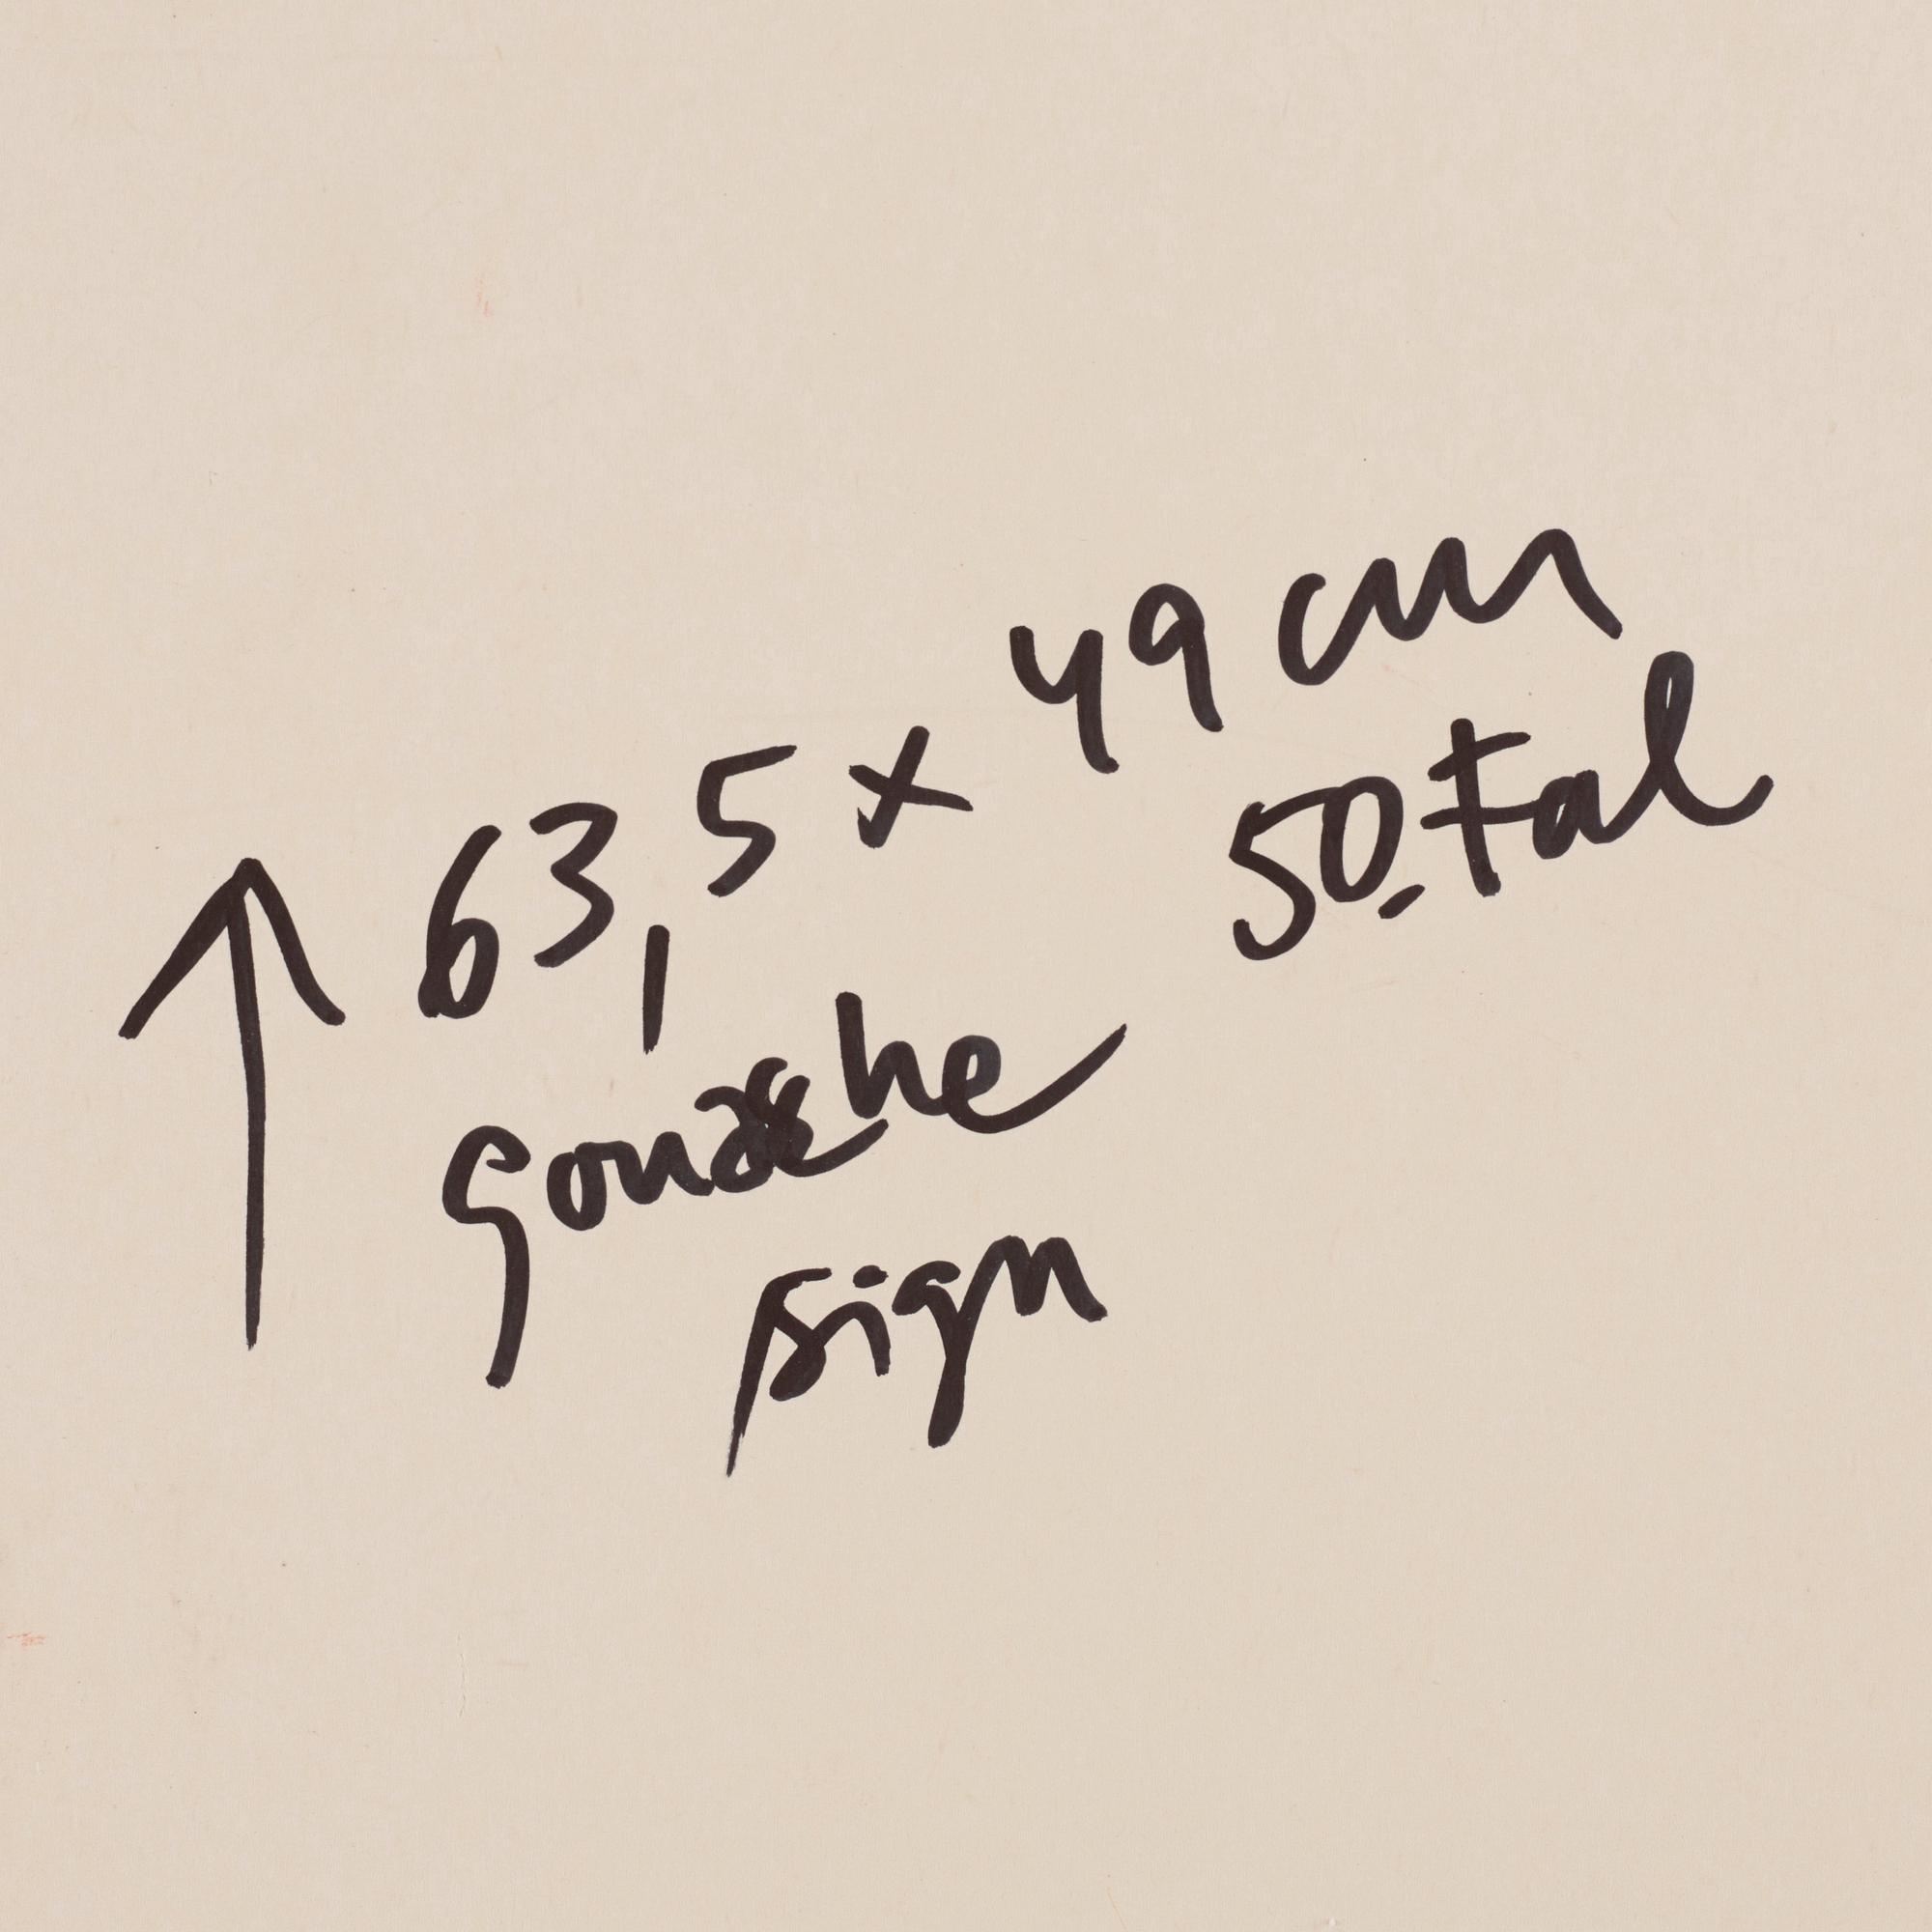 ↑ 63,5 x 49 cm
50-tal
gouache
sign